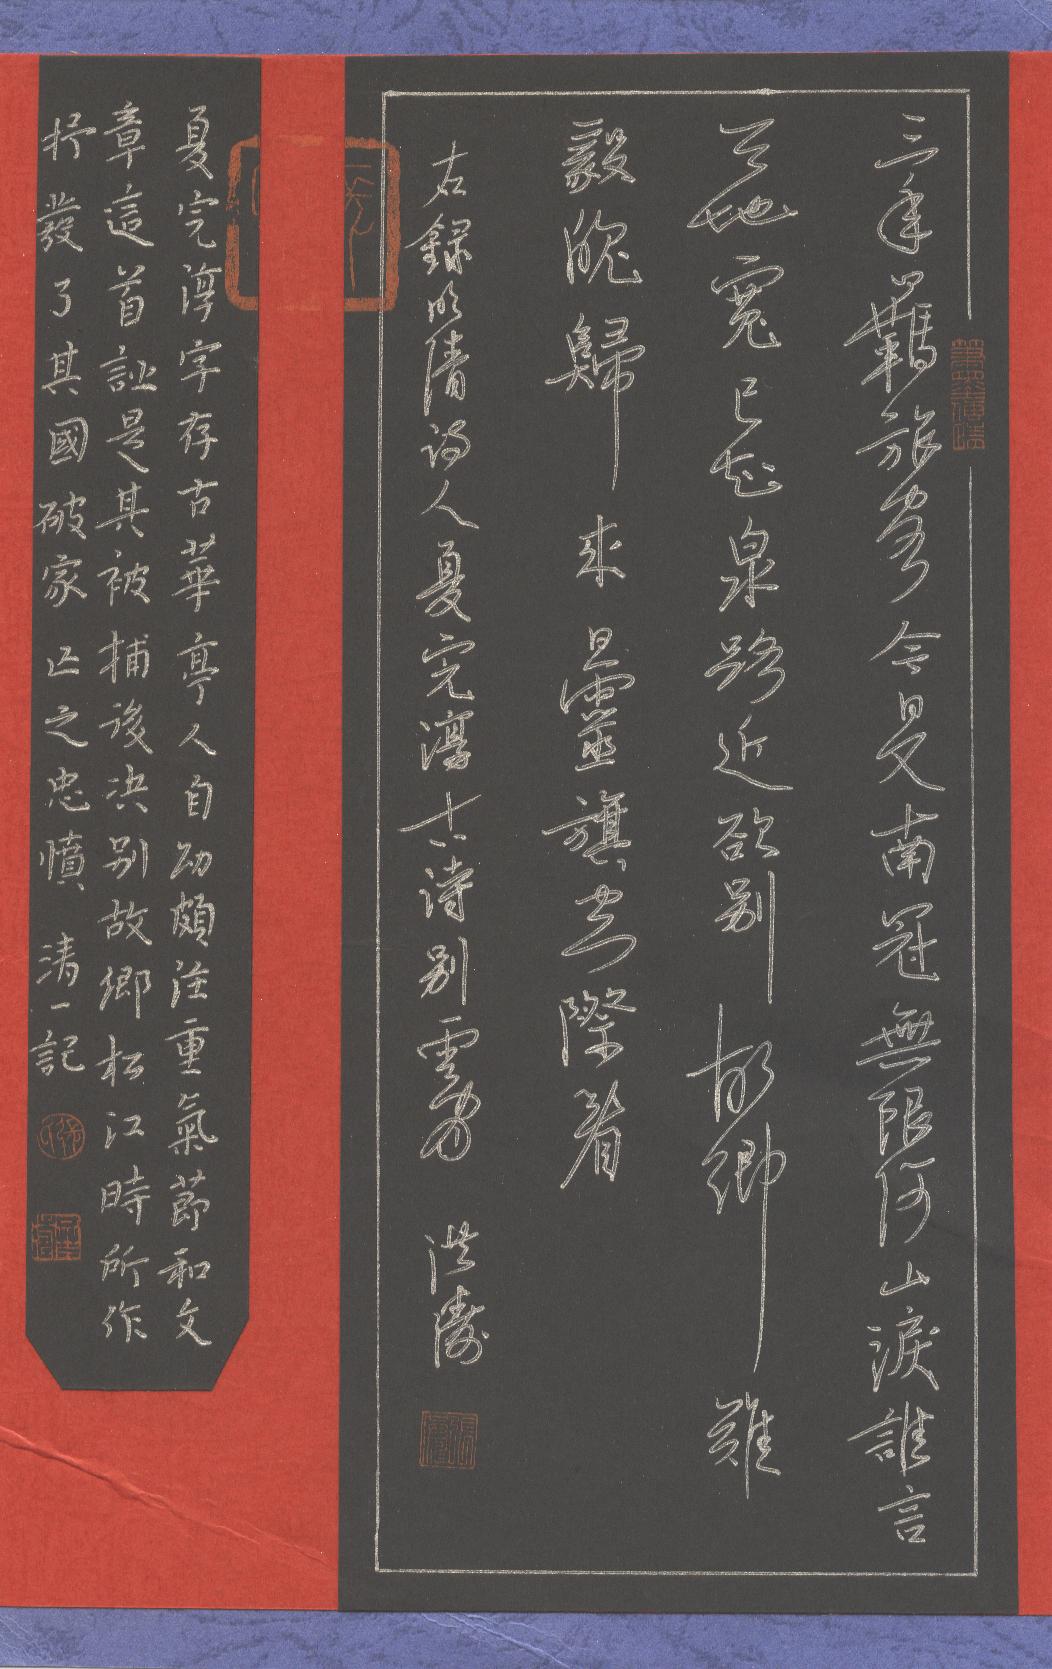 三年羈旅客今日又南冠無限河山淚誰言
天地寬已知泉路近欲別故鄉難
毅魄歸來日靈旗空際看
右錄明清詩人夏完淳古詩別雲間 洪濤
夏完淳字存古華亭人自幼頗注重氣節和文
章這首詩是其被捕後決別故鄉松江時所作
抒發了其國破家亡之忠憤 清一記